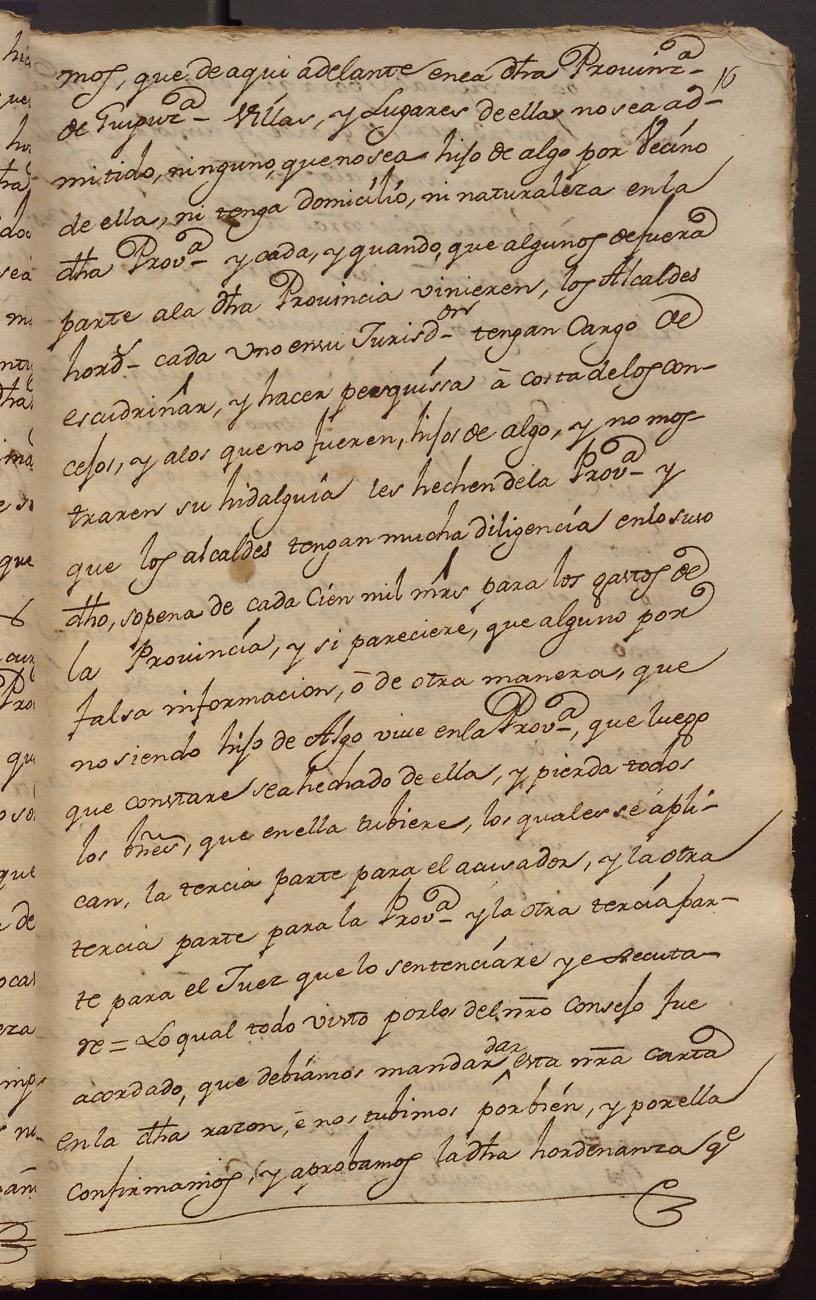 16
mos, que de aqui adelante en ea dha Provinz.ª
de Guipuz.ª Villas, y Lugares de ella no sea ad-
mitido, ninguno, que no sea hijo de algo por Vecino
de ella, ni tenga domicilio, ni naturaleza en la
dha Prov.ª y cada, y quando, que algunos de fuera
parte a la dha Provincia vinieren, los Alcaldes
hord.s cada uno en su Jurisd.on tengan Cargo de
escudriñar, y hacer pesquissa à costa de los con-
cejos, y a los que no fueren, hijos de algo, y no mos-
traren su hidalguia les hechen de la Prov.ª y
que los alcaldes tengan mucha diligencia en lo suso
dho, sopena de cada Cien mil mrs para los gastos de
la Provincia, y si pareciere, que alguno por
falsa informacion, ò de otra manera, que
no siendo hijo de Algo vive en la Prov.ª, que luego
que constare sea hechado de ella, y pierda todos
los bñes, que en ella tubiere, los quales se apli-
can, la tercia parte para el acusador, y la otra
tercia parte para la Prov.ª y la otra tercia par-
te para el Juez que lo sentenciare y executa-
re = Lo qual todo visto por los del nro Consejo fue
acordado, que debiamos mandar dar esta nra carta
en la dha razon, è nos tubimos por bien, y por ella
confirmamos, y aprobamos la dha hordenanza q.e